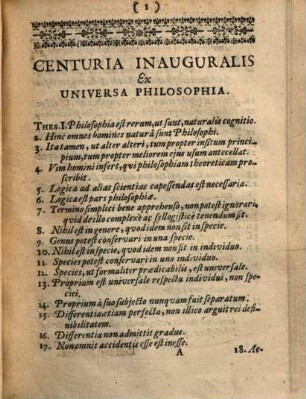 ( 1 )
CENTURIA INAUGURALIS
Ex
UNIVERSA PHILOSOPHIA.
THES. I. Philosophia est rerum, ut sunt, naturalis cognitio.
2. Hinc omnes homines naturâ sunt Philosophi.
3. Ita tamen, ut alter alteri, tum propter insitum princi-
pium, tum propter meliorem ejus usum antecellat.
4. Vim homini infert, qui philosophiam theoreticam pro-
scribit.
5. Logica ad alias scientias capessendas est necessaria.
6. Logica est pars philosophiæ.
7. Termino simplici bene apprehenso, non potest ignorari,
quid de illo complexè ac syllogisticè tenendum sit.
8. Nihil est in genere, quod idem non sit in specie.
9. Genus potest conservari in una specie.
10. Nihil est in specie, quod idem non sit in individuo.
11. Species potest conservari in uno individuo.
12. Species, ut formaliter prædicabilis, est universale.
13. Proprium est universale respectu individui, non spe-
ciei.
14. Proprium à suo subjecto nunquam fuit separatum.
15. Differentia etiam perfecta, non illico arguit rei defi-
nibilitatem.
16. Differentia non admittit gradus.
17. Non omnis accidentis esse est inesse.
A
18. Ac-